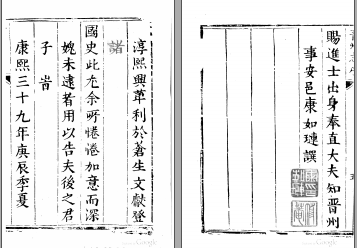 淳熙興革利於蒼生文獻登
諸
國史此尤余所惓惓如意而深
媿未逮者用以告夫後之君
子旹
康熙三十九年庚辰季夏
賜進士出身奉直大夫知晉州
事安邑康如璉譔